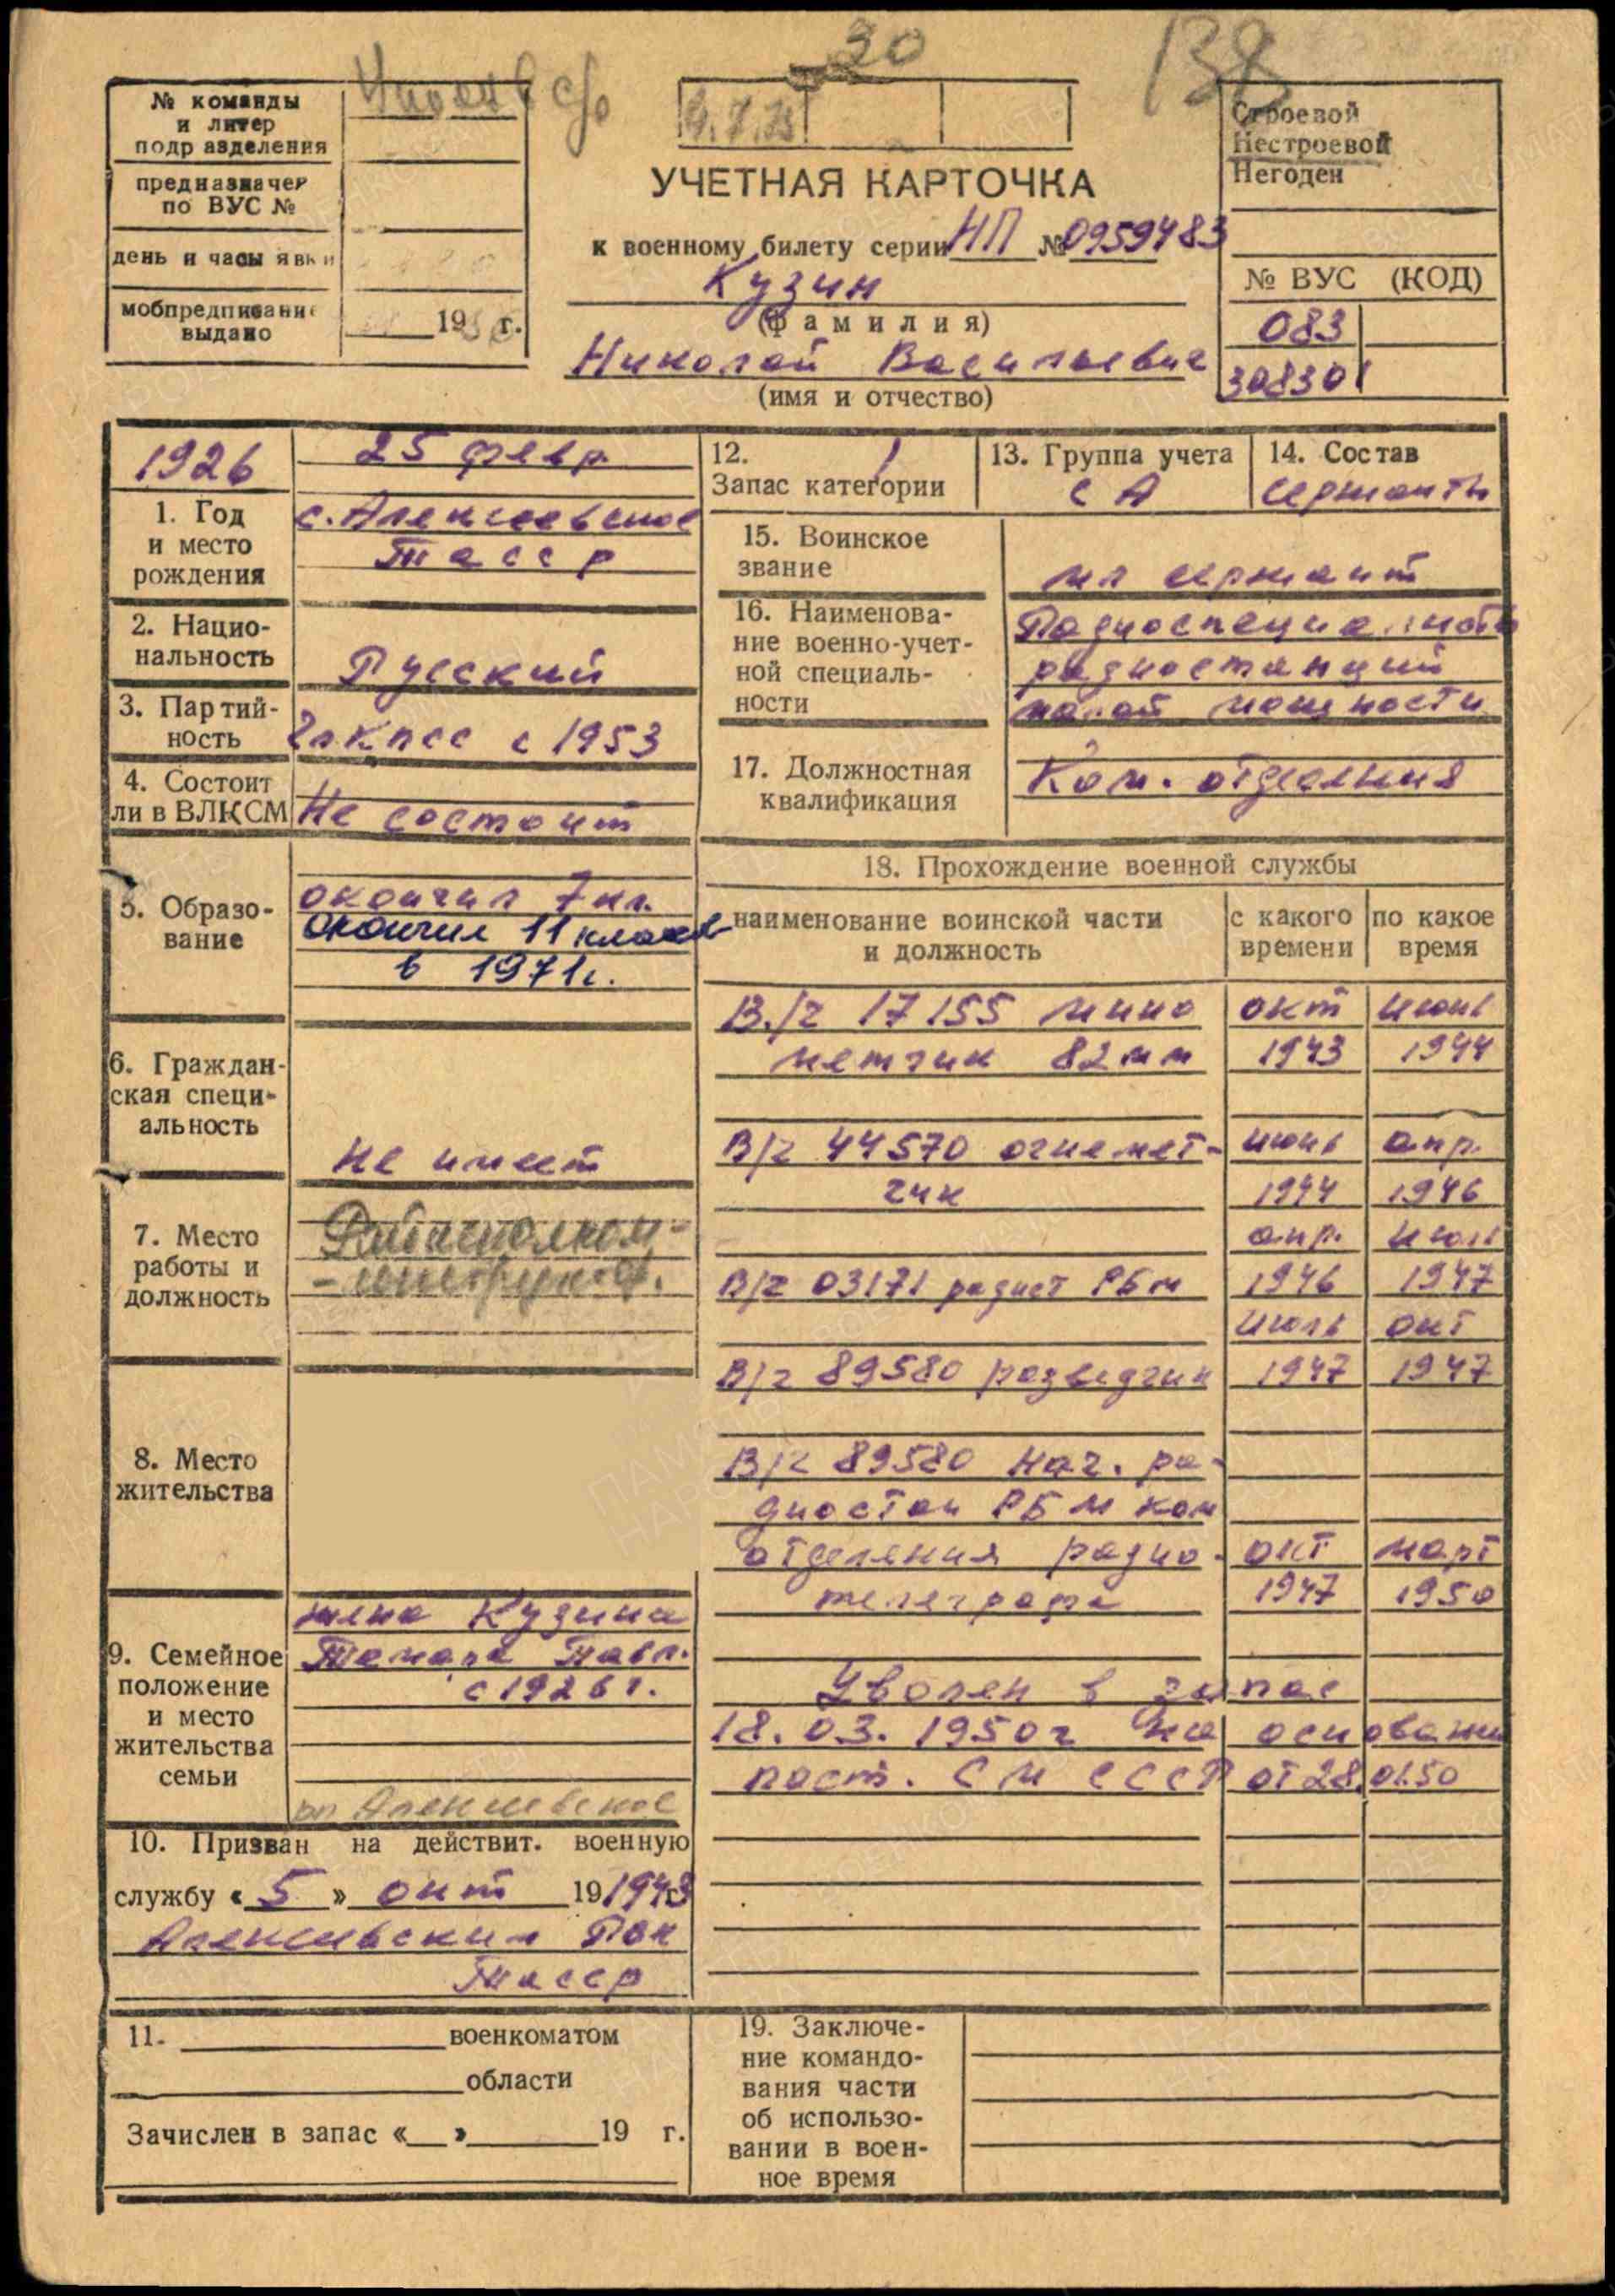 30
138
№ команды
и литер
подразделения
с/о
9.7.75
Строевой
Нестроевой
Негоден
предназначен
по ВУС №
УЧЕТНАЯ КАРТОЧКА
день и часы явки
к военному билету серии НП № 0959483
№ ВУС (КОД)
мобпредписание
выдано
19 г.
Кузин
(фамилия)
083
Николай Васильевич
308301
(имя и отчество)
1926
25 февр.
1. Год
и место
рождения
с. Алексеевское
Тасср
2. Нацио-
нальность
Русский
3. Партий-
ность
Чл КПСС с 1953
4. Состоит
ли в ВЛКСМ
Не состоит
5. Образо-
вание
окончил 7 кл.
окончил 11 классов
в 1971г.
6. Граждан-
ская специ-
альность
Не имеет
7. Место
работы и
должность
Райисполком-
-инструктор.
8. Место
жительства
9. Семейное
положение
и место
жительства
семьи
жена Кузина
Тамара Павл.
с 1926 г.
рп Алексеевское
10. Призван на действит. военную
службу «5» окт 191943г
Алексеевским РВК
Тасср
11. военкоматом
области
Зачислен в запас « » 19 г.
12.
Запас категории
1
13. Группа учета
СА
14. Состав
сержанты
15. Воинское
звание
мл сержант
16. Наименова-
ние военно-учет-
ной специаль-
ности
Радиоспециалисты
радиостанций
малой мощности
17. Должностная
квалификация
Ком. отделения
18. Прохождение военной службы
наименование воинской части
и должность
с какого
времени
по какое
время
В/ч 17155 мино окт июнь
метчик 82мм 1943 1944
В/ч 44570 огнемет- июнь апр.
чик 1944 1946
апр. июль
В/ч 03171 радист РБМ 1946 1947
июль окт
В/ч 89580 разведчик 1947 1947
В/ч 89580 нач. ра-
диостан РБМ ком
отделения радио- окт март
телеграфа 1947 1950
Уволен в запас
18.03.1950г на основани
пост. СМ СССР от 28.01.50
19. Заключе-
ние командо-
вания части
об использо-
вании в воен-
ное время